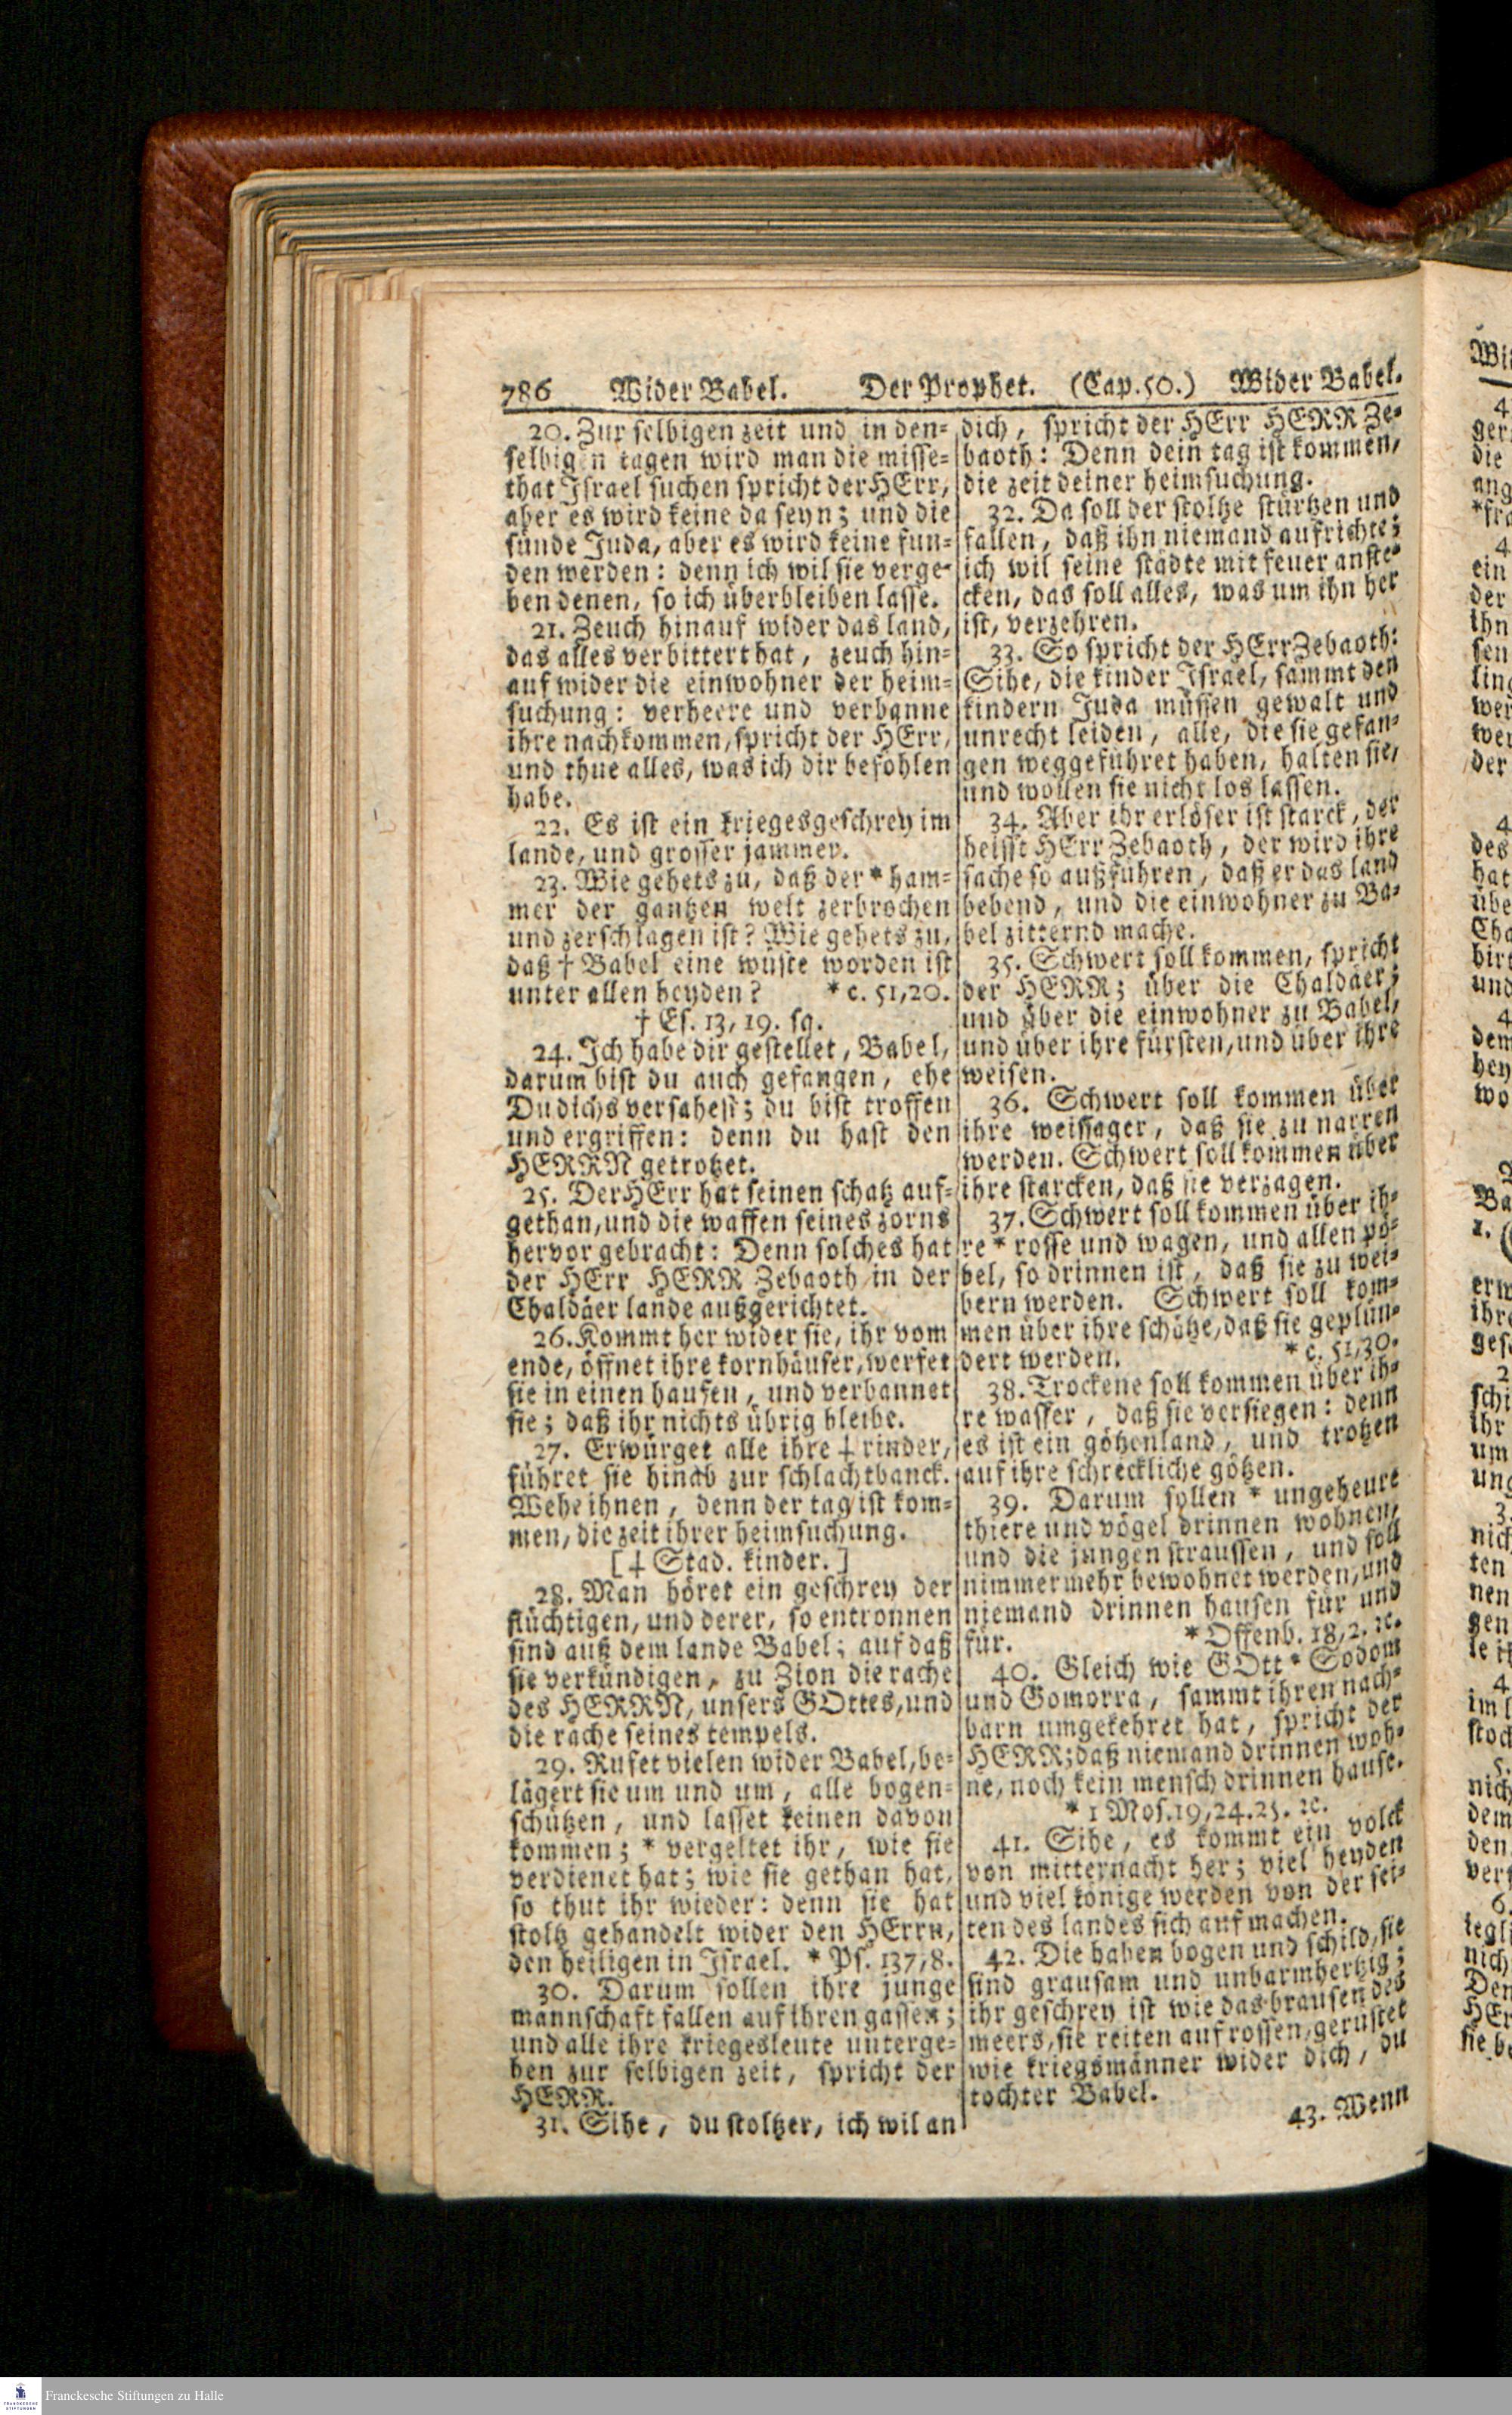 786 Wider Babel. Der Prophet. (Cap.50.) Wider Babel.
20. Zur selbigen zeit und in den-
selbigen tagen wird man die misse-
that Israel suchen spricht der HErr,
aber es wird keine da seyn; und die
sünde Juda, aber es wird keine fun-
den werden: denn ich wil sie verge-
ben denen, so ich überbleiben lasse.
21. Zeuch hinauf wider das land,
das alles verbittert hat, zeuch hin-
auf wider die einwohner der heim-
suchung: verheere und verbanne
ihre nachkommen, spricht der HErr,
und thue alles, was ich dir befohlen
habe.
22. Es ist ein kriegesgeschrey im
lande, und grosser jammer.
23. Wie gehets zu, daß der * ham-
mer der gantzen welt zerbrochen
und zerschlagen ist? Wie gehets zu,
daß † Babel eine wüste worden ist
unter allen heyden? * c. 51,20.
† Es. 13, 19. sq.
24. Ich habe dir gestellet, Babel,
darum bist du auch gefangen, ehe
Du dichs versahest; du bist troffen
und ergriffen: denn du hast den
HERRN getrotzet.
25. Der HErr hat seinen schatz auf-
gethan, und die waffen seines zorns
hervor gebracht: Denn solches hat
der HErr HERR Zebaoth in der
Chaldäer lande außgerichtet.
26. Kommt her wider sie, ihr vom
ende, öffnet ihre kornhäuser, werfet
sie in einen haufen, und verbannet
sie; daß ihr nichts übrig bleibe.
27. Erwürget alle ihre ‡ rinder,
führet sie hinab zur schlachtbanck.
Wehe ihnen, denn der tag ist kom-
men, die zeit ihrer heimsuchung.
[‡ Stad. kinder.]
28. Man höret ein geschrey der
flüchtigen, und derer, so entronnen
sind auß dem lande Babel; auf daß
sie verkündigen, zu Zion die rache
des HERRN, unsers GOttes, und
die rache seines tempels.
29. Rufet vielen wider Babel, be-
lägert sie um und um, alle bogen-
schützen, und lasset keinen davon
kommen; * vergeltet ihr, wie sie
verdienet hat; wie sie gethan hat,
so thut ihr wieder: denn sie hat
stoltz gehandelt wider den HErrn,
den heiligen in Israel. * Ps. 137,8.
30. Darum sollen ihre junge
mannschaft fallen auf ihren gassen;
und alle ihre kriegesleute unterge-
hen zur selbigen zeit, spricht der
HERR.
31. Sihe, du stoltzer, ich wil an
dich, spricht der HErr HERR Ze-
baoth: Denn dein tag ist kommen,
die zeit deiner heimsuchung.
32. Da soll der stoltze stürtzen und
fallen, daß ihn niemand aufrichte;
ich wil seine städte mit feuer anste-
cken, das soll alles, was um ihn her
ist, verzehren.
33. So spricht der HErr Zebaoth:
Sihe, die kinder Israel, sammt den
kindern Juda müssen gewalt und
unrecht leiden, alle, die sie gefan-
gen weggeführet haben, halten sie,
und wollen sie nicht los lassen.
34. Aber ihr erlöser ist starck, der
heisst HErr Zebaoth, der wird ihre
sache so außführen, daß er das land
bebend, und die einwohner zu Ba-
bel zitternd mache.
35. Schwert soll kommen, spricht
der HERR; über die Chaldäer;
und über die einwohner zu Babel,
und über ihre fürsten, und über ihre
weisen.
36. Schwert soll kommen über
ihre weissager, daß sie zu narren
werden. Schwert soll kommen über
ihre starcken, daß sie verzagen.
37. Schwert soll kommen über ih-
re * rosse und wagen, und allen pö-
bel, so drinnen ist, daß sie zu wei-
bern werden. Schwert soll kom-
men über ihre schätze, daß sie geplün-
dert werden. * c. 51,30.
38. Trockene soll kommen über ih-
re wasser, daß sie versiegen: denn
es ist ein götzenland, und trotzen
auf ihre schreckliche götzen.
39. Darum sollen * ungeheure
thiere und vögel drinnen wohnen,
und die jungen straussen, und soll
nimmermehr bewohnet werden, und
niemand drinnen hausen für und
für. * Offenb. 18,2. ꝛc.
40. Gleich wie GOtt * Sodom
und Gomorra, sammt ihren nach-
barn umgekehret hat, spricht der
HERR; daß niemand drinnen woh-
ne, noch kein mensch drinnen hause.
* 1 Mos. 19,24.25. ꝛc.
41. Sihe, es kommt ein volck
von mitternacht her; viel heyden
und viel könige werden von der sei-
ten des landes sich aufmachen.
42. Die haben bogen und schild, sie
sind grausam und unbarmhertzig;
ihr geschrey ist wie das brausen des
meers, sie reiten auf rossen, gerüstet
wie kriegsmänner wider dich, du
tochter Babel.
43. Wenn
Franckesche Stiftungen zu Halle